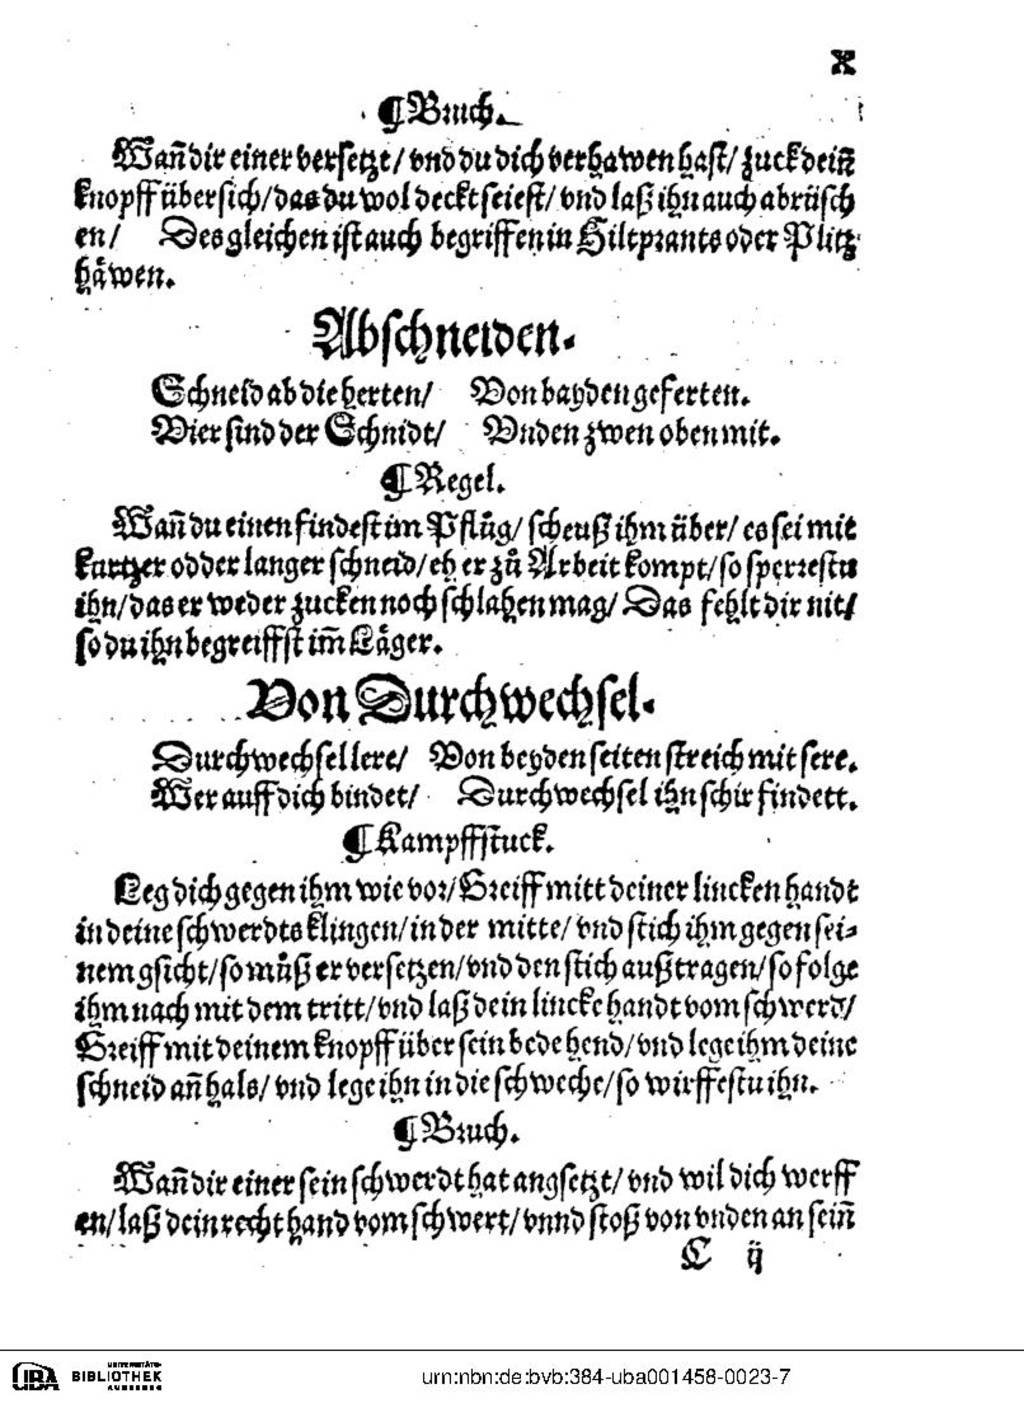 X
¶ Bruch.
Wañ dir einer versetzt/ vnd du dich verhawen hast/ zuck dein̄
knopff übersich/ das du wol deckt seiest/ vnd laß ihn auch abrüsch
en/ Desgleichen ist auch begriffen in Hiltprants oder Plitz
håwen.
Abschneiden.
Schneid ab die herten/ Von bayden geferten.
Vier sind der Schnidt/ Vnden zwen oben mit.
¶ Regel.
Wañ du einen findest im Pflůg/ scheuß ihm über/ es sei mit
kurtzer odder langer schneid/ eh er zů Arbeit kompt/ so sperrestu
ihn/ das er weder zucken noch schlahen mag/ Das fehlt dir nit/
so du ihn begreiffst im̄ Låger.
Von Durchwechsel.
Durchwechsel lere/ Von beyden seiten streich mit sere.
Wer auff dich bindet/ Durchwechsel ihn schir findett.
¶ Kampffstuck.
Leg dich gegen ihm wie vor/ Greiff mitt deiner lincken handt
in deine schwerdts klingen/ in der mitte/ vnd stich ihm gegen sei-
nem gsicht/ so můß er versetzen/ vnd den stich außtragen/ so folge
ihm nach mit dem tritt/ vnd laß dein lincke handt vom schwerd/
Greiff mit deinem knopff über sein bede hend/ vnd lege ihm deine
schneid an̄ hals/ vnd lege ihn in die schweche/ so wirffestu ihn.
¶ Bruch.
Wañ dir einer sein schwerdt hat angsetzt/ vnd wil dich werff
en/ laß dein recht hand vom schwert/ vnnd stoß von vnden an sein̄
C ij
UBA UNIVERSITÄTS-
BIBLIOTHEK
AUGSBURG
urn:nbn:de:bvb:384-uba001458-0023-7